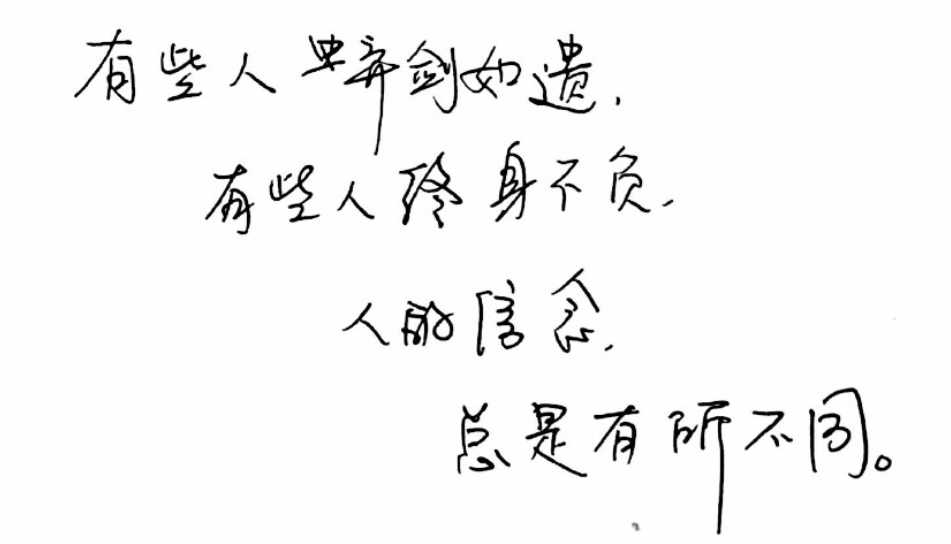 有些人弃剑如遗,
有些人终身不负.
人的信念.
总是有所不同。